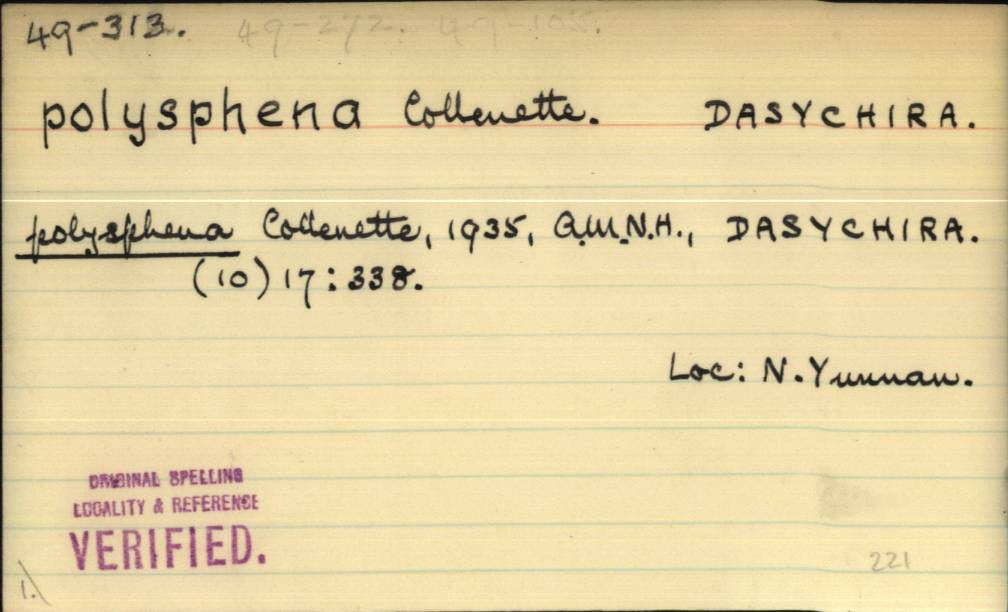 49-313. 49-272. 49-105.
polysphena Collenette. DASYCHIRA.
polysphena Collenette, 1935, A.M.N.H., DASYCHIRA.
(10) 17: 338.
Loc: N. Yunnan.
ORIGINAL SPELLING
LOCALITY & REFERENCE
VERIFIED.
221
1.)